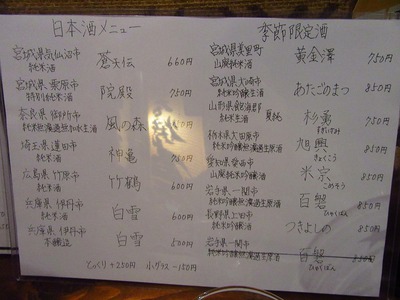 日本酒メニュー
宮城県気仙沼市
純米酒
蒼天伝
660円
宮城県栗原市
特別純米酒
院殿
750円
奈良県御所市
純米無濾過無加水生酒
風の森
埼玉県蓮田市
純米酒
神亀
750円
広島県竹原市
純米酒
竹鶴
600円
兵庫県伊丹市
純米酒
白雪
600円
兵庫県伊丹市
本醸造
白雪
500円
とっくり+250円 小グラス-150円
季節限定酒
宮城県美里町
山廃純米酒
黄金澤
750円
宮城県大崎市
純米吟醸生酒
あたごのまつ
850円
山形県飽海郡
夏純
純米酒
杉勇
すぎいさみ
750円
栃木県大田原市
純米無濾過生原酒
旭興
きょくこう
850円
愛知県愛西市
山廃純米吟醸生原酒
米宗
こめそう
850円
岩手県一関市
純米吟醸無濾過生原酒
百磐
ひゃくばん
850円
長野県上田市
純米吟醸生原酒
つきよしの
850円
岩手県一関市
純米吟醸無濾過生原酒
百磐
ひゃくばん
850円